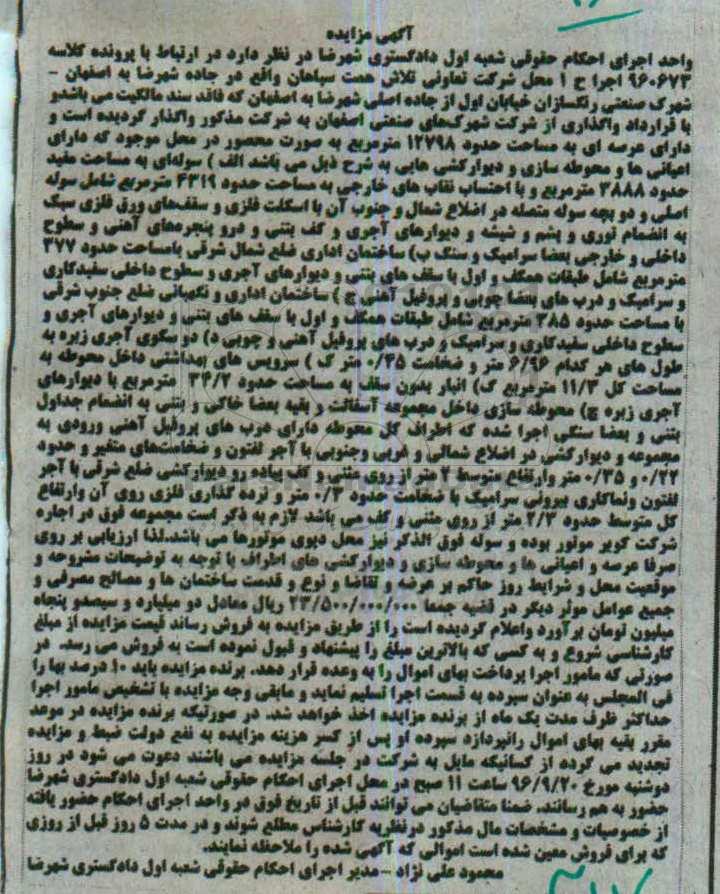 آگهی مزایده
واحد اجرای احکام حقوقی شعبه اول دادگستری شهرضا در نظر دارد در ارتباط با پرونده کلاسه
۹۶۰۶۷۳ اجرا ح ۱ محل شرکت تعاونی تلاش همت سپاهان واقع در جاده شهرضا به اصفهان -
شهرک صنعتی رنگسازان خیابان اول از جاده اصلی شهرضا به اصفهان که فاقد سند مالکیت می باشدو
با قرارداد واگذاری از شرکت شهرک‌های صنعتی اصفهان به شرکت مذکور واگذار گردیده است و
دارای عرصه ای به مساحت حدود ۱۲۷۹۸ مترمربع به صورت محصور در محل موجود که دارای
اعیانی ها و محوطه سازی و دیوارکشی هایی به شرح ذیل می باشد الف ) سوله‌ای به مساحت مفید
حدود ۳۸۸۸ مترمربع و با احتساب نقاب های خارجی به مساحت حدود ۴۳۱۹ مترمربع شامل سوله
اصلی و دو بچه سوله متصله در اضلاع شمال و جنوب آن با اسکلت فلزی و سقف‌های ورق فلزی سبک
به انضمام توری و پشم و شیشه و دیوارهای آجری و کف بتنی و درو پنجره‌های آهنی و سطوح
داخلی و خارجی بعضا سرامیک و سنگ ب) ساختمان اداری ضلع شمال شرقی بامساحت حدود ۳۷۷
مترمربع شامل طبقات همکف و اول با سقف های بتنی و دیوارهای آجری و سطوح داخلی سفیدکاری
و سرامیک و درب های بعضا چوبی و پروفیل آهنی ج ) ساختمان اداری و نگهبانی ضلع جنوب شرقی
با مساحت حدود ۳۸۵ مترمربع شامل طبقات همکف و اول با سقف های بتنی و دیوارهای آجری و
سطوح داخلی سفیدکاری و سرامیک و درب های پروفیل آهنی و چوبی د) دو سکوی آجری زبره به
طول های هر کدام ۶/۹۶ متر و ضخامت ۰/۴۵ متر ک ) سرویس های بهداشتی داخل محوطه به
مساحت کل ۱۱/۳ مترمربع گ) انبار بدون سقف به مساحت حدود ۳۴/۲ مترمربع با دیوارهای
آجری زبره چ) محوطه سازی داخل مجموعه آسفالت و بقیه بعضا خاکی و بتنی به انضمام جداول
بتنی و بعضا سنگی اجرا شده که اطراف کل محوطه دارای درب های پروفیل آهنی ورودی به
مجموعه و دیوارکشی در اضلاع شمالی و غربی وجنوبی با آجر لفتون و ضخامت‌های متغیر و حدود
۰/۲۲ و ۰/۳۵ متر وارتفاع متوسط ۲ متر از روی متنی و کف پیاده رو دیوارکشی ضلع شرقی با آجر
لفتون ونماکاری بیرونی سرامیک با ضخامت حدود ۰/۳ متر و نرده گذاری فلزی روی آن وارتفاع
کل متوسط حدود ۲/۳ متر از روی متنی و کف می باشد لازم به ذکر است مجموعه فوق در اجاره
شرکت کویر موتور بوده و سوله فوق الذکر نیز محل دپوی موتورها می باشد.لذا ارزیابی بر روی
صرفا عرصه و اعیانی ها و محوطه سازی و دیوارکشی های اطراف با توجه به توضیحات مشروحه و
موقعیت محل و شرایط روز حاکم بر عرضه و تقاضا و نوع و قدمت ساختمان ها و مصالح مصرفی و
جمیع عوامل موثر دیگر در قضیه جمعا ۲۳/۵۰۰/۰۰۰/۰۰۰ ریال معادل دو میلیارد و سیصدو پنجاه
میلیون تومان برآورد واعلام گردیده است را از طریق مزایده به فروش رساند قیمت مزایده از مبلغ
کارشناسی شروع و به کسی که بالاترین مبلغ را پیشنهاد و قبول نموده است به فروش می رسد. در
صورتی که مامور اجرا پرداخت بهای اموال را به وعده قرار دهد. برنده مزایده باید ۱۰ درصد بها را
فی المجلس به عنوان سپرده به قسمت اجرا تسلیم نماید و مابقی وجه مزایده با تشخیص مامور اجرا
حداکثر ظرف مدت یک ماه از برنده مزایده اخذ خواهد شد. در صورتیکه برنده مزایده در موعد
مقرر بقیه بهای اموال رانپردازد سپرده او پس از کسر هزینه مزایده به نفع دولت ضبط و مزایده
تجدید می گرده از کسانیکه مایل به شرکت در جلسه مزایده می باشند دعوت می شود در روز
دوشنبه مورخ ۹۶/۹/۲۰ ساعت ۱۱ صبح در محل اجرای احکام حقوقی شعبه اول دادگستری شهرضا
حضور به هم رسانند. ضمنا متقاضیان می توانند قبل از تاریخ فوق در واحد اجرای احکام حضور یافته
از خصوصیات و مشخصات مال مذکور درنظریه کارشناس مطلع شوند و در مدت ۵ روز قبل از روزی
که برای فروش معین شده است اموالی که آگهی شده را ملاحظه نمایند.
محمود علی نژاد -مدیر اجرای احکام حقوقی شعبه اول دادگستری شهرضا